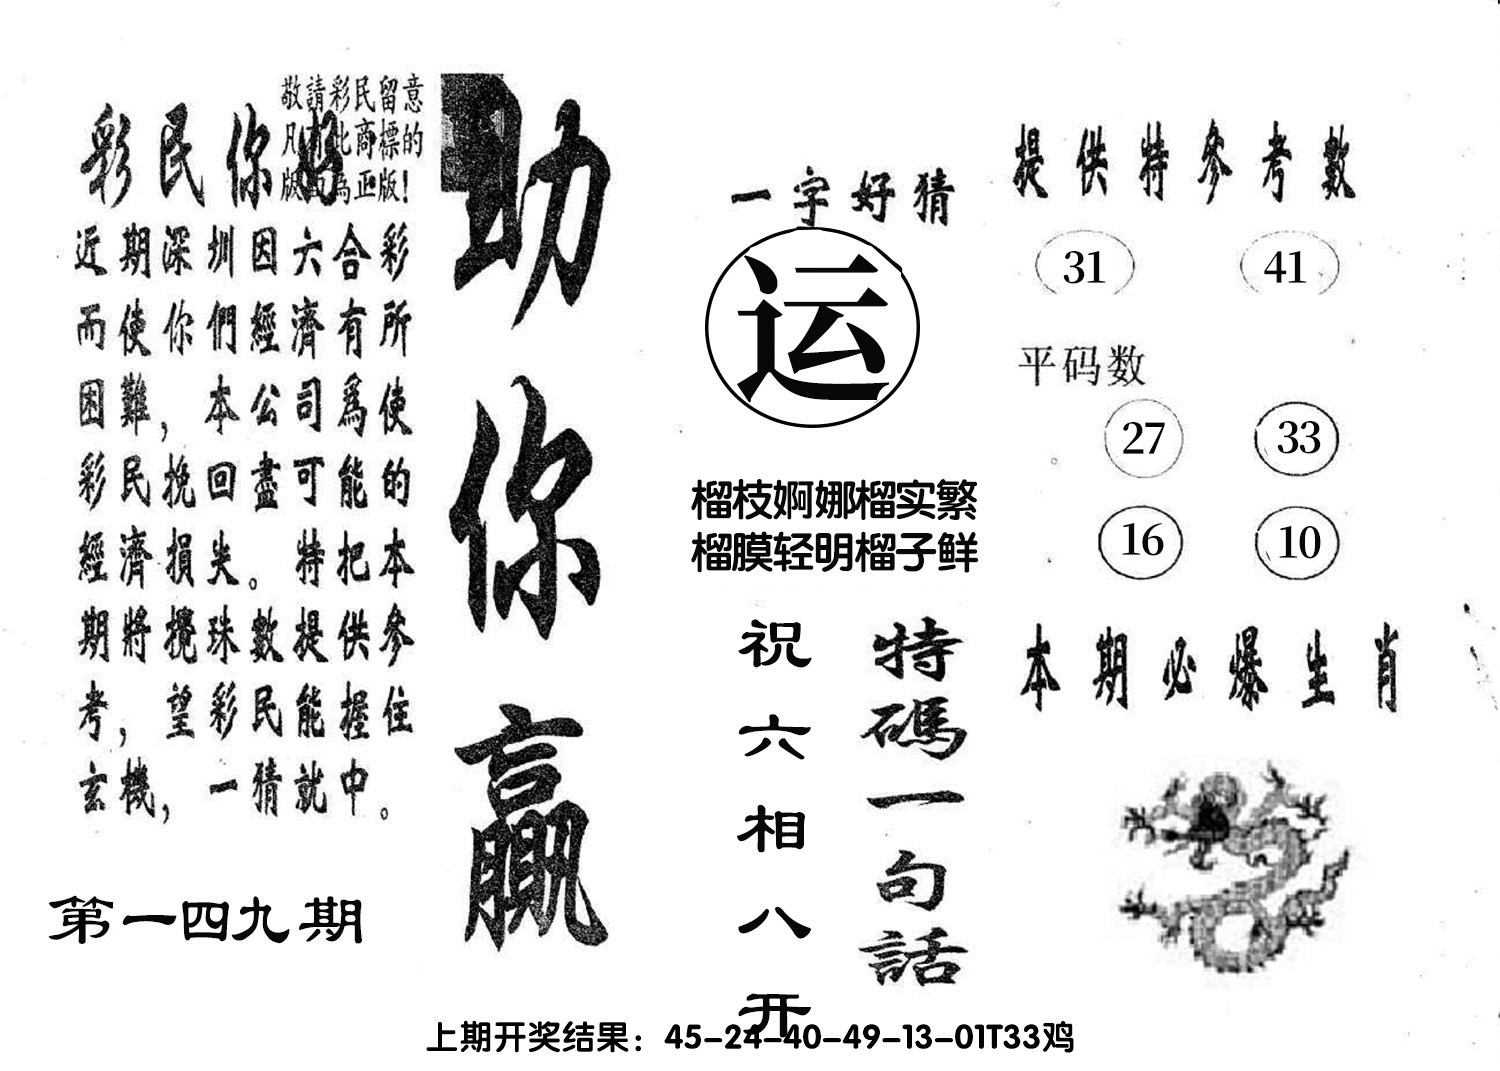 敬請彩民留意
凡有此商標的
版面為正版!
彩民你好
近期深圳因六合彩
而使你們經濟有所
困難，本公司爲使
彩民挽回盡可能的
經濟損失。特把本
期將攪珠數提供參
考，望彩民能握住
玄機，一猜就中。
第一四九期
助你赢
一字好猜
运
榴枝婀娜榴实繁
榴膜轻明榴子鲜
特碼一句話
祝六相八开
提供特參考數
31 41
平码数
27 33
16 10
本期必爆生肖
上期开奖结果：45-24-40-49-13-01T33鸡